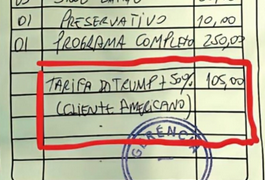 01 PRESERVATIVO 10,00
01 PROGRAMA COMPLETO 250,00
TARIFA DO TRUMP + 50% 105,00
(CLIENTE AMERICANO)
GERÊNCIA